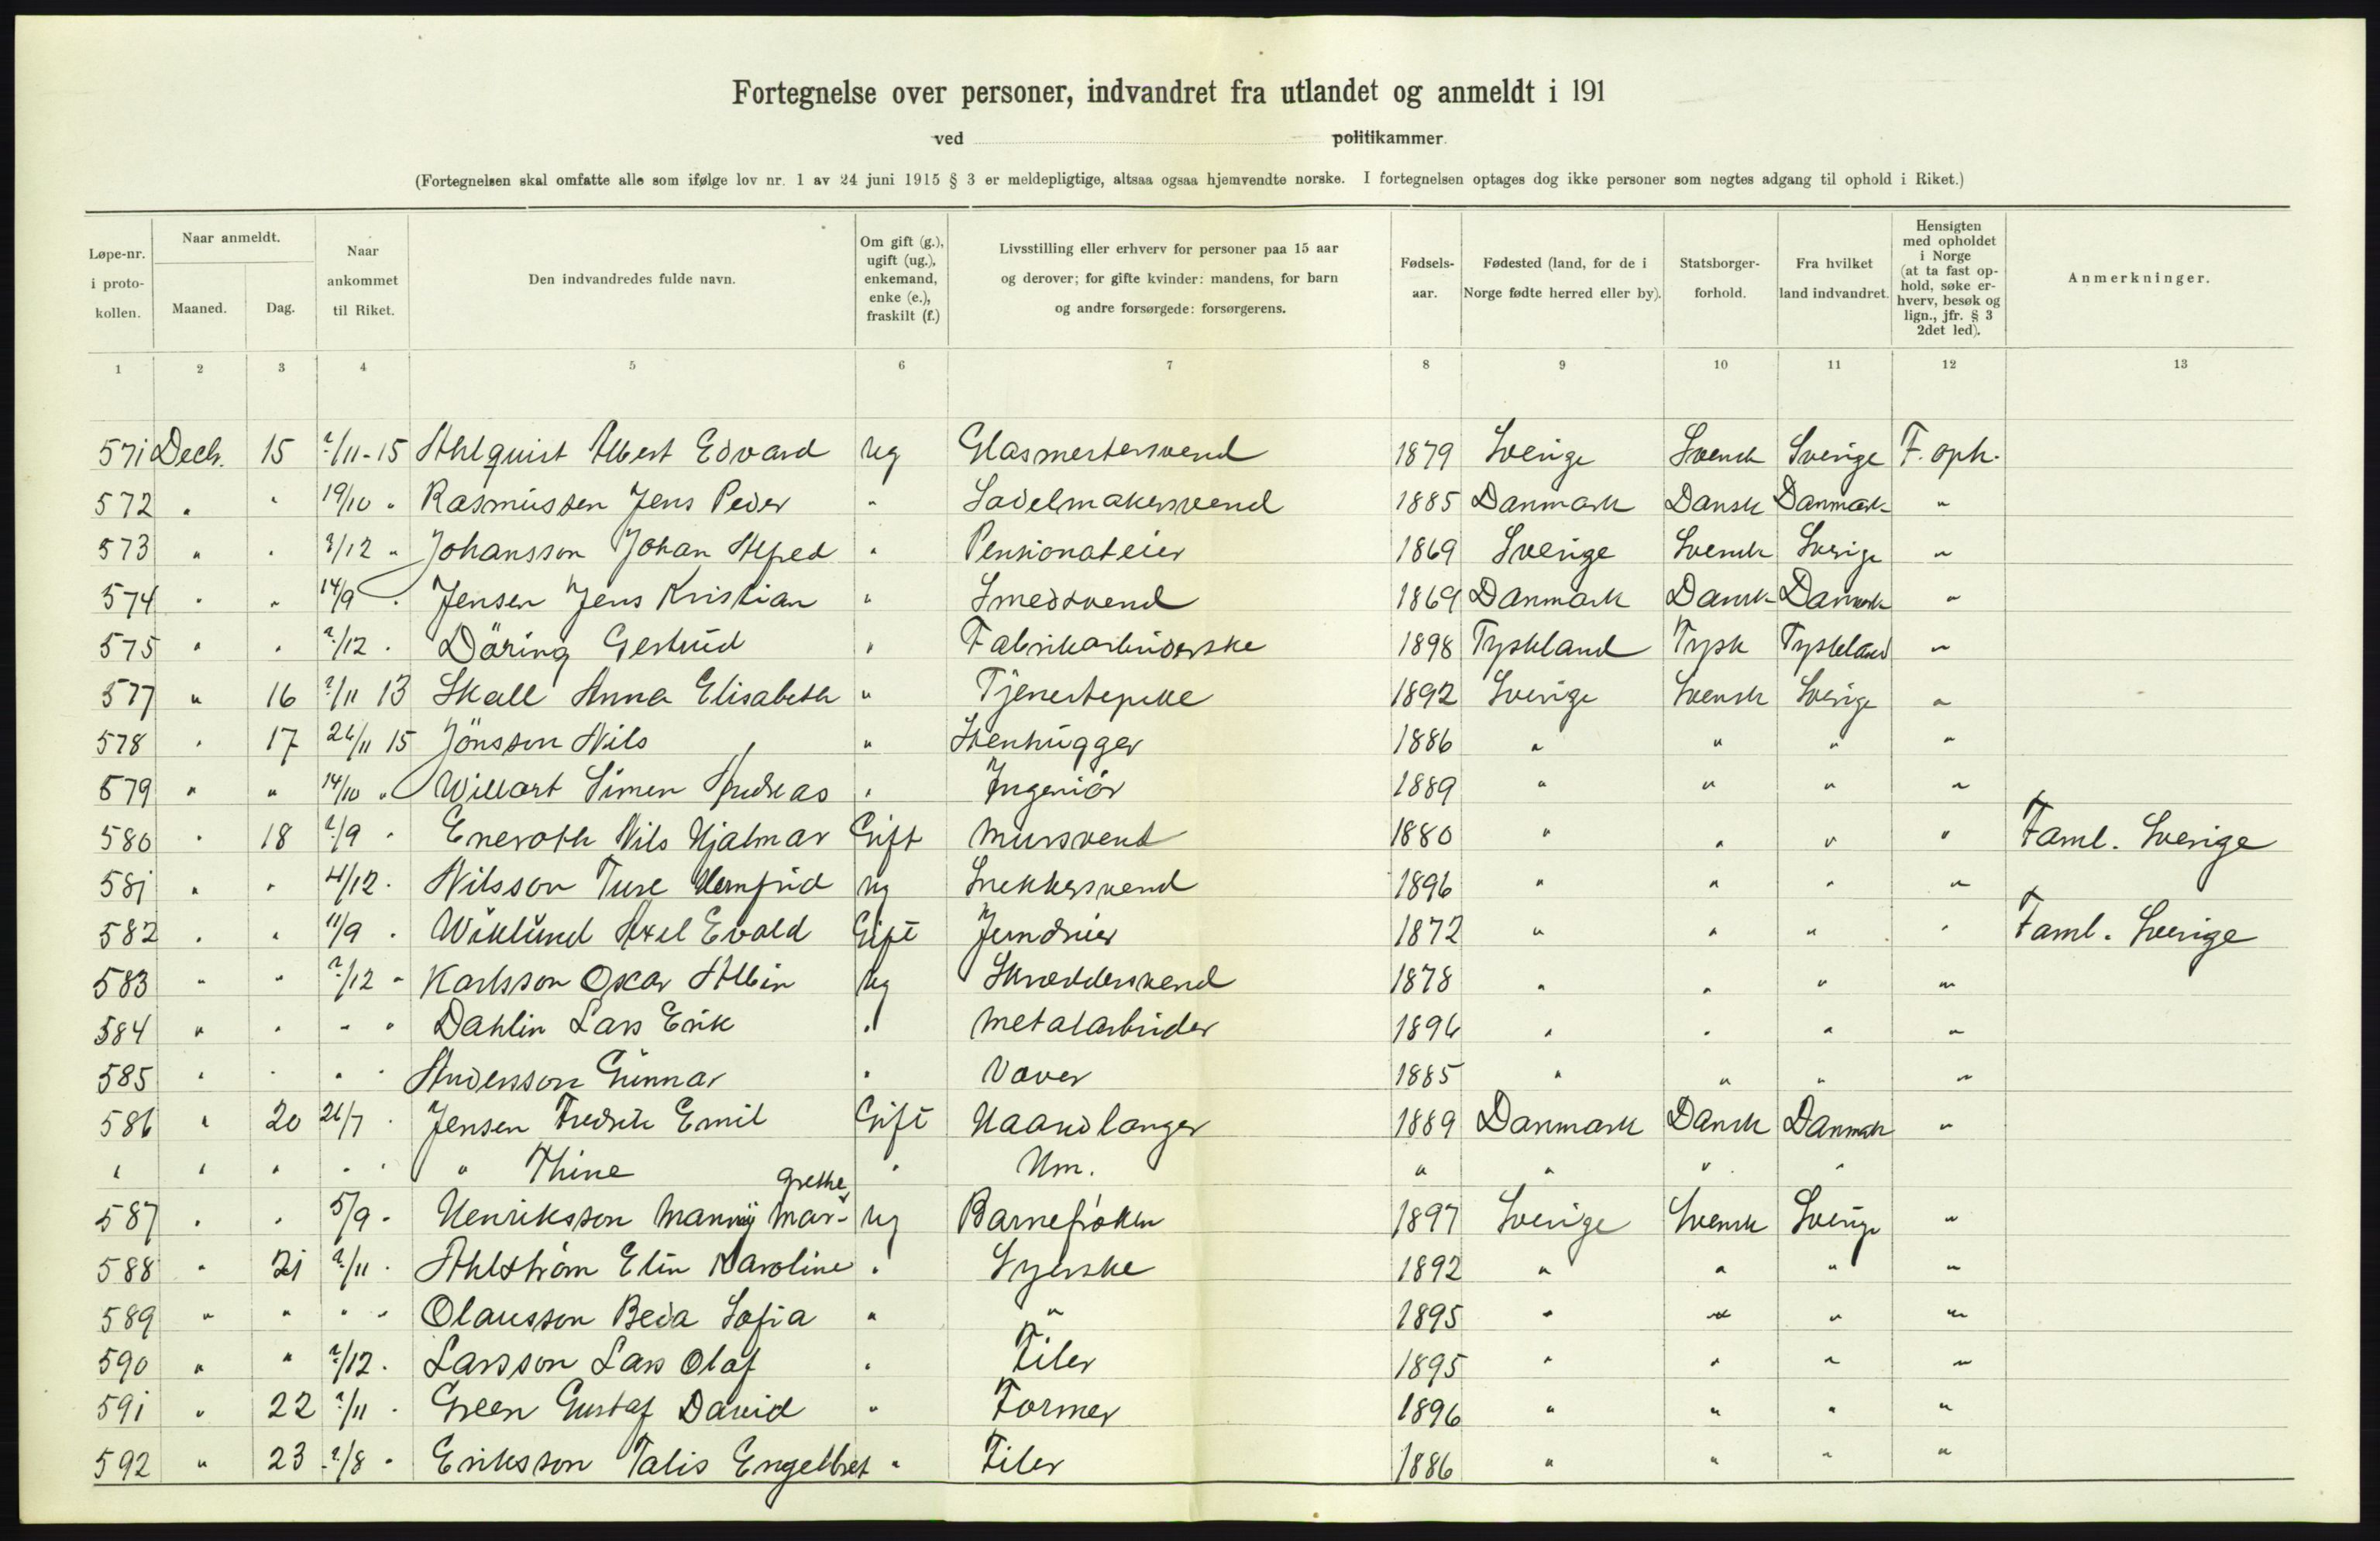 Fortegnelse over personer, indvandret fra utlandet og anmeldt i 191
ved politikammer.
(Fortegnelsen skal omfatte alle som ifølge lov nr. 1 av 24 juni 1915 § 3 er meldepligtige, altsaa ogsaa hjemvendte norske. I fortegnelsen optages dog ikke personer som negtes adgang til ophold i Riket.)
Løpe-nr. i proto-kollen. | Naar anmeldt. Maaned. | Dag. | Naar ankommet til Riket. | Den indvandredes fulde navn. | Om gift (g.), ugift (ug.), enkemand, enke (e.), fraskilt (f.) | Livsstilling eller erhverv for personer paa 15 aar og derover; for gifte kvinder: mandens, for barn og andre forsørgede: forsørgerens. | Fødsels-aar. | Fødested (land, for de i Norge fødte herred eller by). | Statsborger-forhold. | Fra hvilket land indvandret. | Hensigten med opholdet i Norge (at ta fast op-hold, søke er-hverv, besøk og lign., jfr. § 3 2det led). | Anmerkninger.
1 2 3 4 5 6 7 8 9 10 11 12 13
571 Decb. 15 ?/11-15 Ahlquist Albert Edvard Ug Glasmestersvend 1879 Sverige Svensk Sverige F. oph.
572 " " 19/10 " Rasmussen Jens Peder " Sadelmakersvend 1885 Danmark Dansk Danmark "
573 " " 8/12 " Johansson Johan Alfred " Pensionateier 1869 Sverige Svensk Sverige "
574 " " 14/9 " Jensen Jens Kristian " Smedsvend 1869 Danmark Dansk Danmark "
575 " " ?/12 " Döring Gertrud " Fabrikarbeiderske 1898 Tyskland Tysk Tyskland "
577 " 16 ?/11 13 Skall Anna Elisabeth " Tjenestepike 1892 Sverige Svensk Sverige "
578 " 17 26/11 15 Jönsson Nils " Stenhugger 1886 " " " "
579 " " 14/10 " Willart Simen Andreas " Ingeniör 1889 " " " "
580 " 18 ?/9 " Eneroth Nils Hjalmar Gift Mursvend 1880 " " " " Faml. Sverige
581 " " 4/12 " Nilsson Ture Hemfrid Ug Snekkersvend 1896 " " " "
582 " " 11/9 " Wiklund Axel Evald Gift Jerndreier 1872 " " " " Faml. Sverige
583 " " ?/12 " Karlsson Oskar Albin Ug Skræddersvend 1878 " " " "
584 " " " " Dahlin Lars Erik " Metalarbeider 1896 " " " "
585 " " " " Andersson Gunnar " Væver 1885 " " " "
586 " 20 26/7 " Jensen Fredrik Emil Gift Haandlanger 1889 Danmark Dansk Danmark "
" " " " " " Thine " Hm. " " " "
grethe
587 " " 5/9 " Henriksson Manny Mar- Ug Barnefrøken 1897 Sverige Svensk Sverige "
588 " 21 ?/11 " Ahlström Elin Karoline " Syerske 1892 " " " "
589 " " " " Olausson Beda Sofia " " 1895 " " " "
590 " " ?/12 " Larsson Lars Olaf " Filer 1895 " " " "
591 " 22 ?/11 " Green Gustaf David " Former 1896 " " " "
592 " 23 ?/8 " Eriksson Talis Engelbret " Filer 1886 " " " "